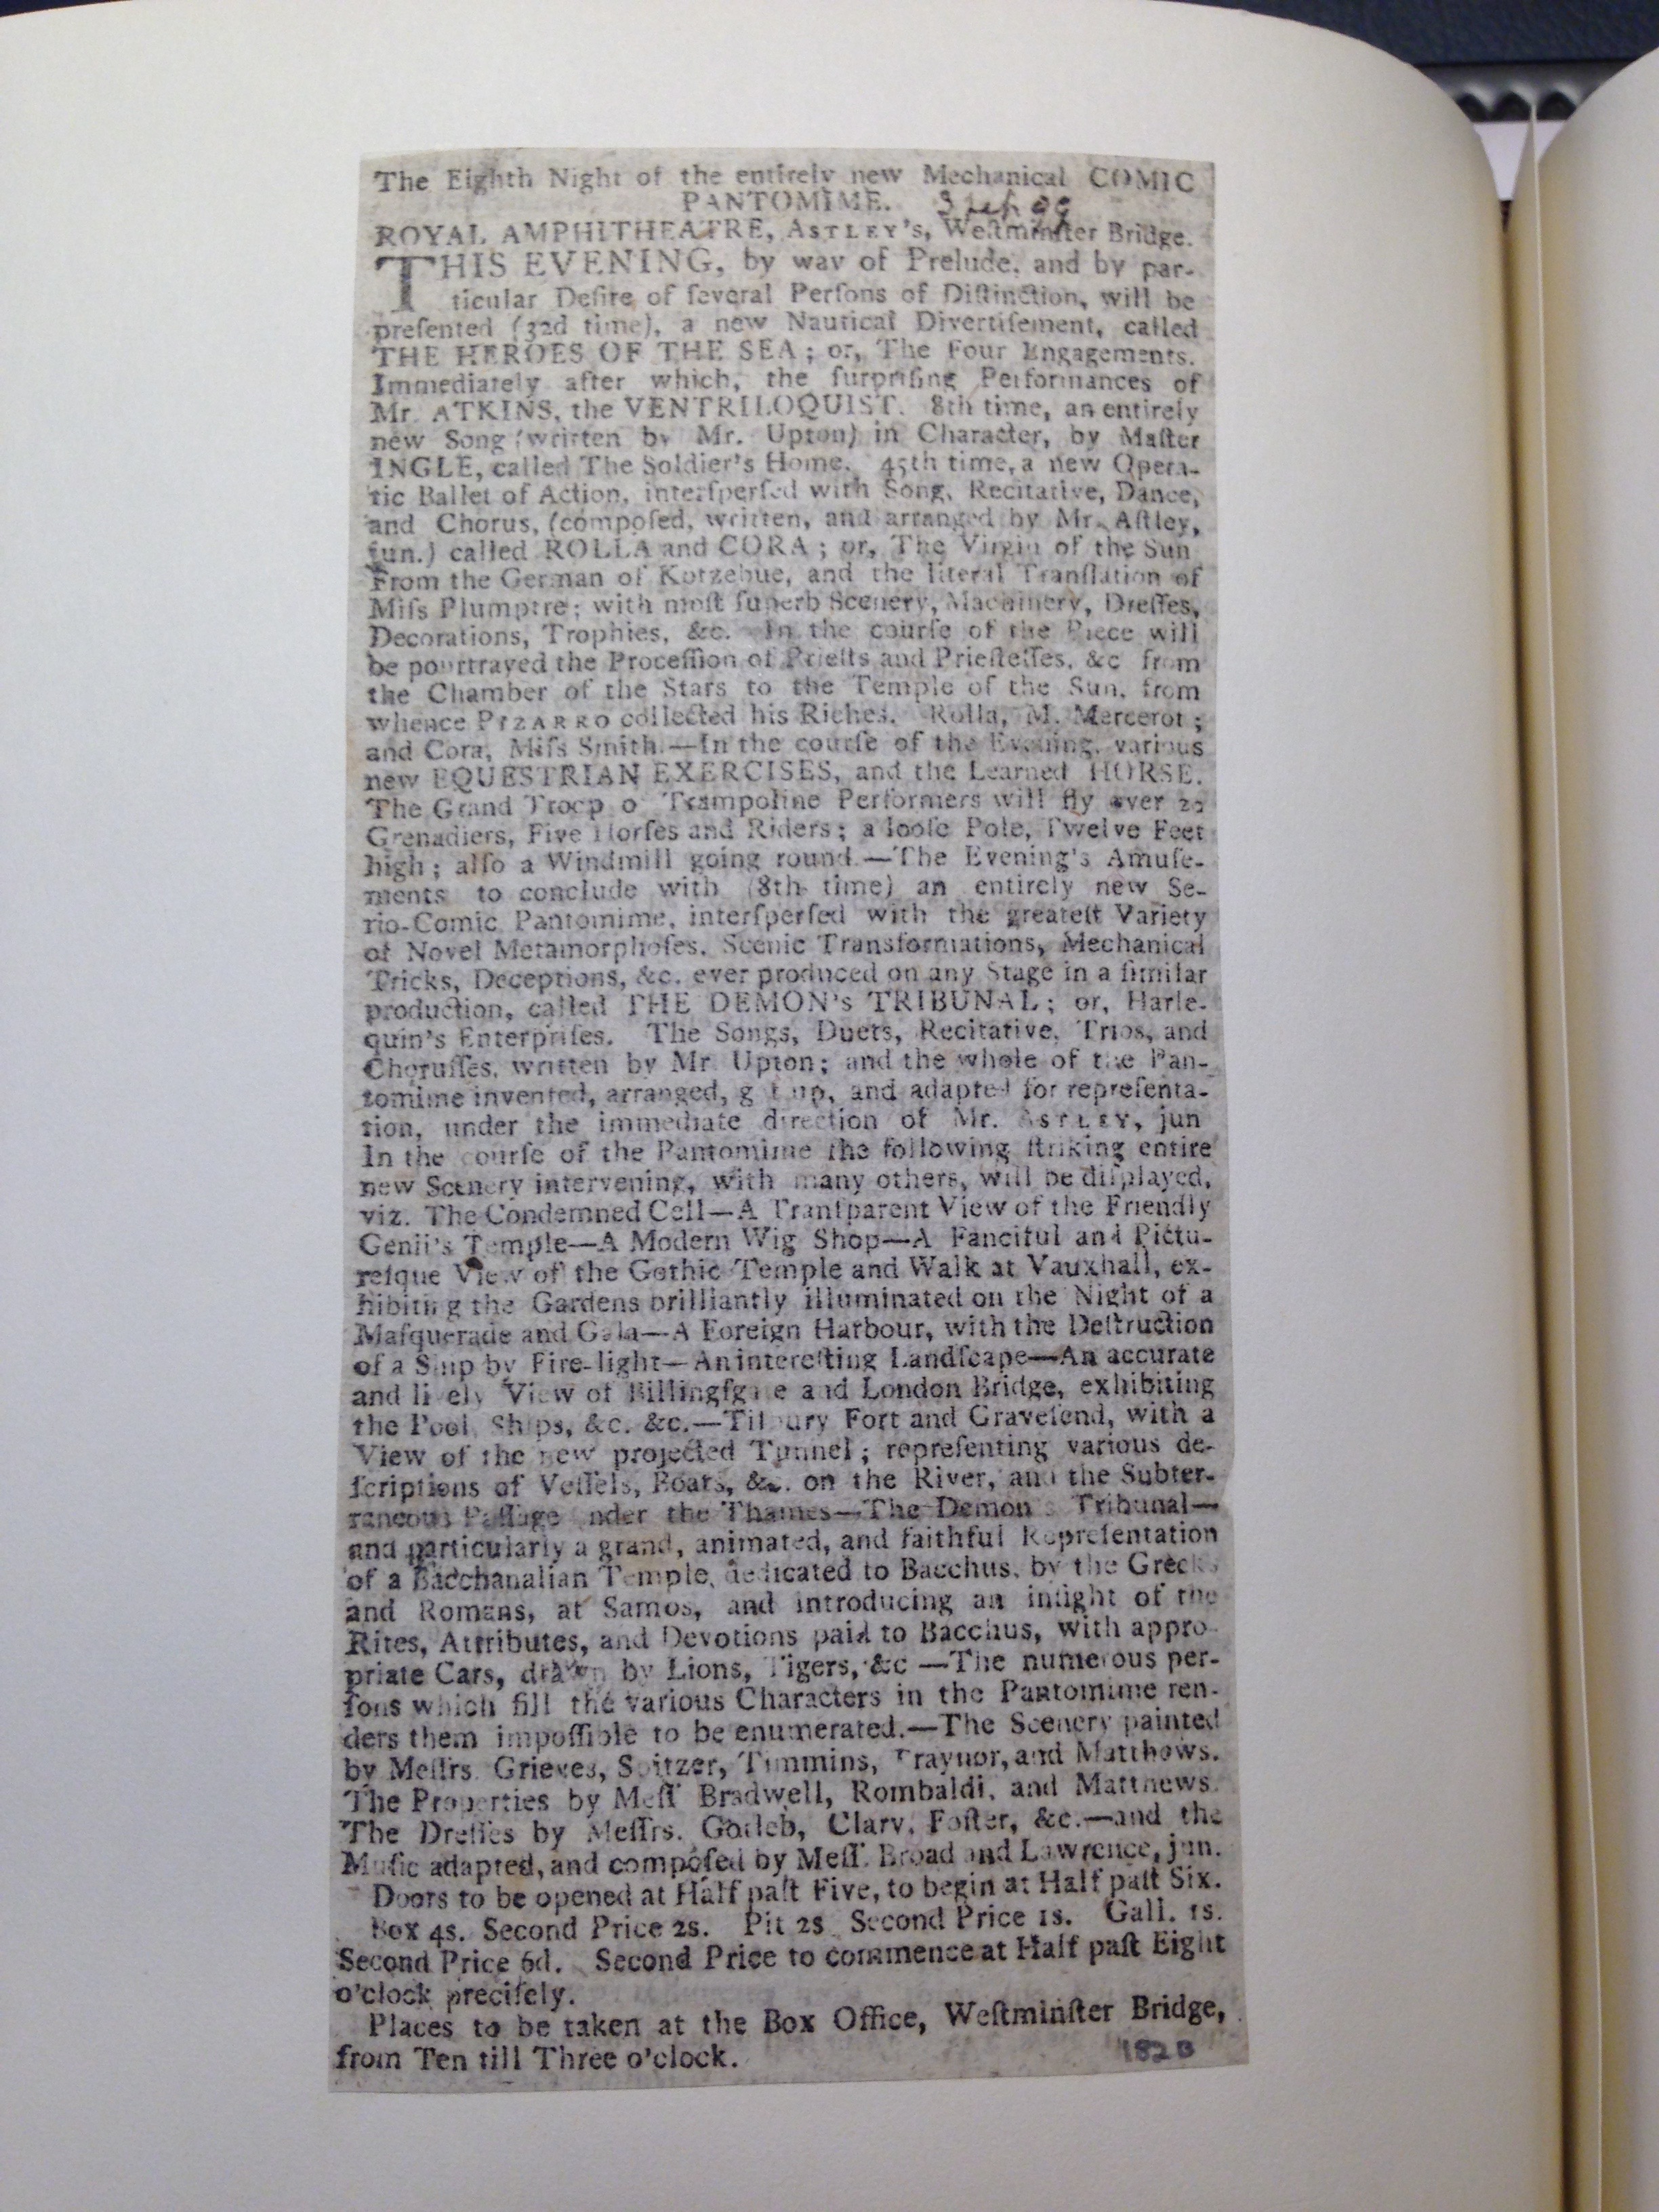 The Eighth Night of the entirely new Mechanical COMIC
PANTOMIME. 3 Sep 99
ROYAL AMPHITHEATRE, ASTLEY's, Weſtminſter Bridge.
THIS EVENING, by way of Prelude, and by par-
ticular Deſire of ſeveral Perſons of Diſtinction, will be
preſented (32d time), a new Nautical Divertiſement, called
THE HEROES OF THE SEA; or, The Four Engagements.
Immediately after which, the ſurpriſing Performances of
Mr. ATKINS, the VENTRILOQUIST. 8th time, an entirely
new Song (written by Mr. Upton) in Character, by Maſter
INGLE, called The Soldier's Home. 45th time, a new Opera-
tic Ballet of Action, interſperſed with Song, Recitative, Dance,
and Chorus, (compoſed, written, and arranged by Mr. Aſtley,
jun.) called ROLLA and CORA; or, The Virgin of the Sun
From the German of Kotzebue, and the literal Tranſlation of
Miſs Plumptre; with moſt ſuperb Scenery, Machinery, Dreſſes,
Decorations, Trophies, &c. In the courſe of the Piece will
be pourtrayed the Proceſſion of Prieſts and Prieſteſſes, &c from
the Chamber of the Stars to the Temple of the Sun, from
whence PIZARRO collected his Riches. Rolla, M. Mercerot;
and Cora, Miſs Smith.—In the courſe of the Evening, various
new EQUESTRIAN EXERCISES, and the Learned HORSE.
The Grand Troop o Trampoline Performers will fly over 20
Grenadiers, Five Horſes and Riders; a looſe Pole, Twelve Feet
high; alſo a Windmill going round.—The Evening's Amuſe-
ments to conclude with (8th time) an entirely new Se-
rio-Comic Pantomime, interſperſed with the greateſt Variety
of Novel Metamorphoſes, Scenic Transformations, Mechanical
Tricks, Deceptions, &c. ever produced on any Stage in a ſimilar
production, called THE DEMON's TRIBUNAL; or, Harle-
quin's Enterpriſes. The Songs, Duets, Recitative, Trios, and
Choruſſes, written by Mr. Upton; and the whole of the Pan-
tomime invented, arranged, got up, and adapted for repreſenta-
tion, under the immediate direction of Mr. ASTLEY, jun
In the courſe of the Pantomime the following ſtriking entire
new Scenery intervening, with many others, will be diſplayed,
viz. The Condemned Cell—A Tranſparent View of the Friendly
Genii's Temple—A Modern Wig Shop—A Fanciful and Pictu-
reſque View of the Gothic Temple and Walk at Vauxhall, ex-
hibiting the Gardens brilliantly illuminated on the Night of a
Maſquerade and Gala—A Foreign Harbour, with the Deſtruction
of a Ship by Fire-light—An intereſting Landſcape—An accurate
and lively View of Billingſgate and London Bridge, exhibiting
the Pool, Ships, &c. &c.—Tilbury Fort and Graveſend, with a
View of the new projected Tunnel; repreſenting various de-
ſcriptions of Veſſels, Boats, &c. on the River, and the Subter-
raneous Paſſage under the Thames—The Demon's Tribunal—
and particularly a grand, animated, and faithful Repreſentation
of a Bacchanalian Temple, dedicated to Bacchus, by the Greeks
and Romans, at Samos, and introducing an inſight of the
Rites, Attributes, and Devotions paid to Bacchus, with appro-
priate Cars, drawn by Lions, Tigers, &c —The numerous per-
ſons which fill the various Characters in the Pantomime ren-
ders them impoſſible to be enumerated.—The Scenery painted
by Meſſrs. Grieves, Spitzer, Timmins, Traynor, and Matthews.
The Properties by Meſſ. Bradwell, Rombaldi, and Matthews.
The Dreſſes by Meſſrs. Gotleb, Clary, Foſter, &c.—and the
Muſic adapted, and compoſed by Meſſ. Broad and Lawrence, jun.
Doors to be opened at Half paſt Five, to begin at Half paſt Six.
Box 4s. Second Price 2s. Pit 2s Second Price 1s. Gall. 1s.
Second Price 6d. Second Price to commence at Half paſt Eight
o'clock preciſely.
Places to be taken at the Box Office, Weſtminſter Bridge,
from Ten till Three o'clock.